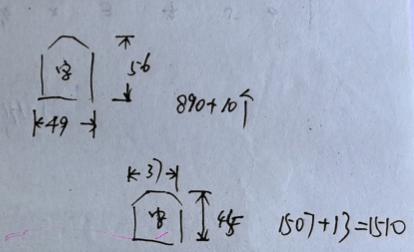 字
56
49
890+10个
37
字
1507+13=1510